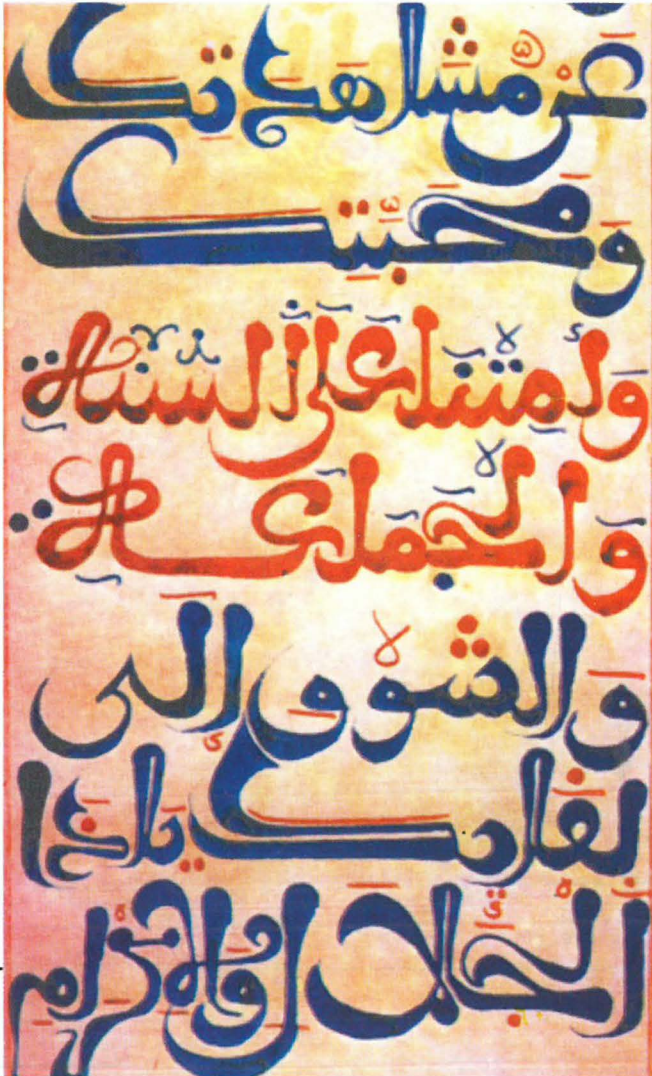 عَنْ مُّشَاهَدَتِكَ
وَمَحَبَّتِكَ
وَأَمِتْنَا عَلَى السُّنَّةِ
وَالْجَمَاعَةِ
وَالشَّوْقِ إِلَى
لِقَائِكَ يَا ذَا
الْجَلَالِ وَالْإِكْرَامِ